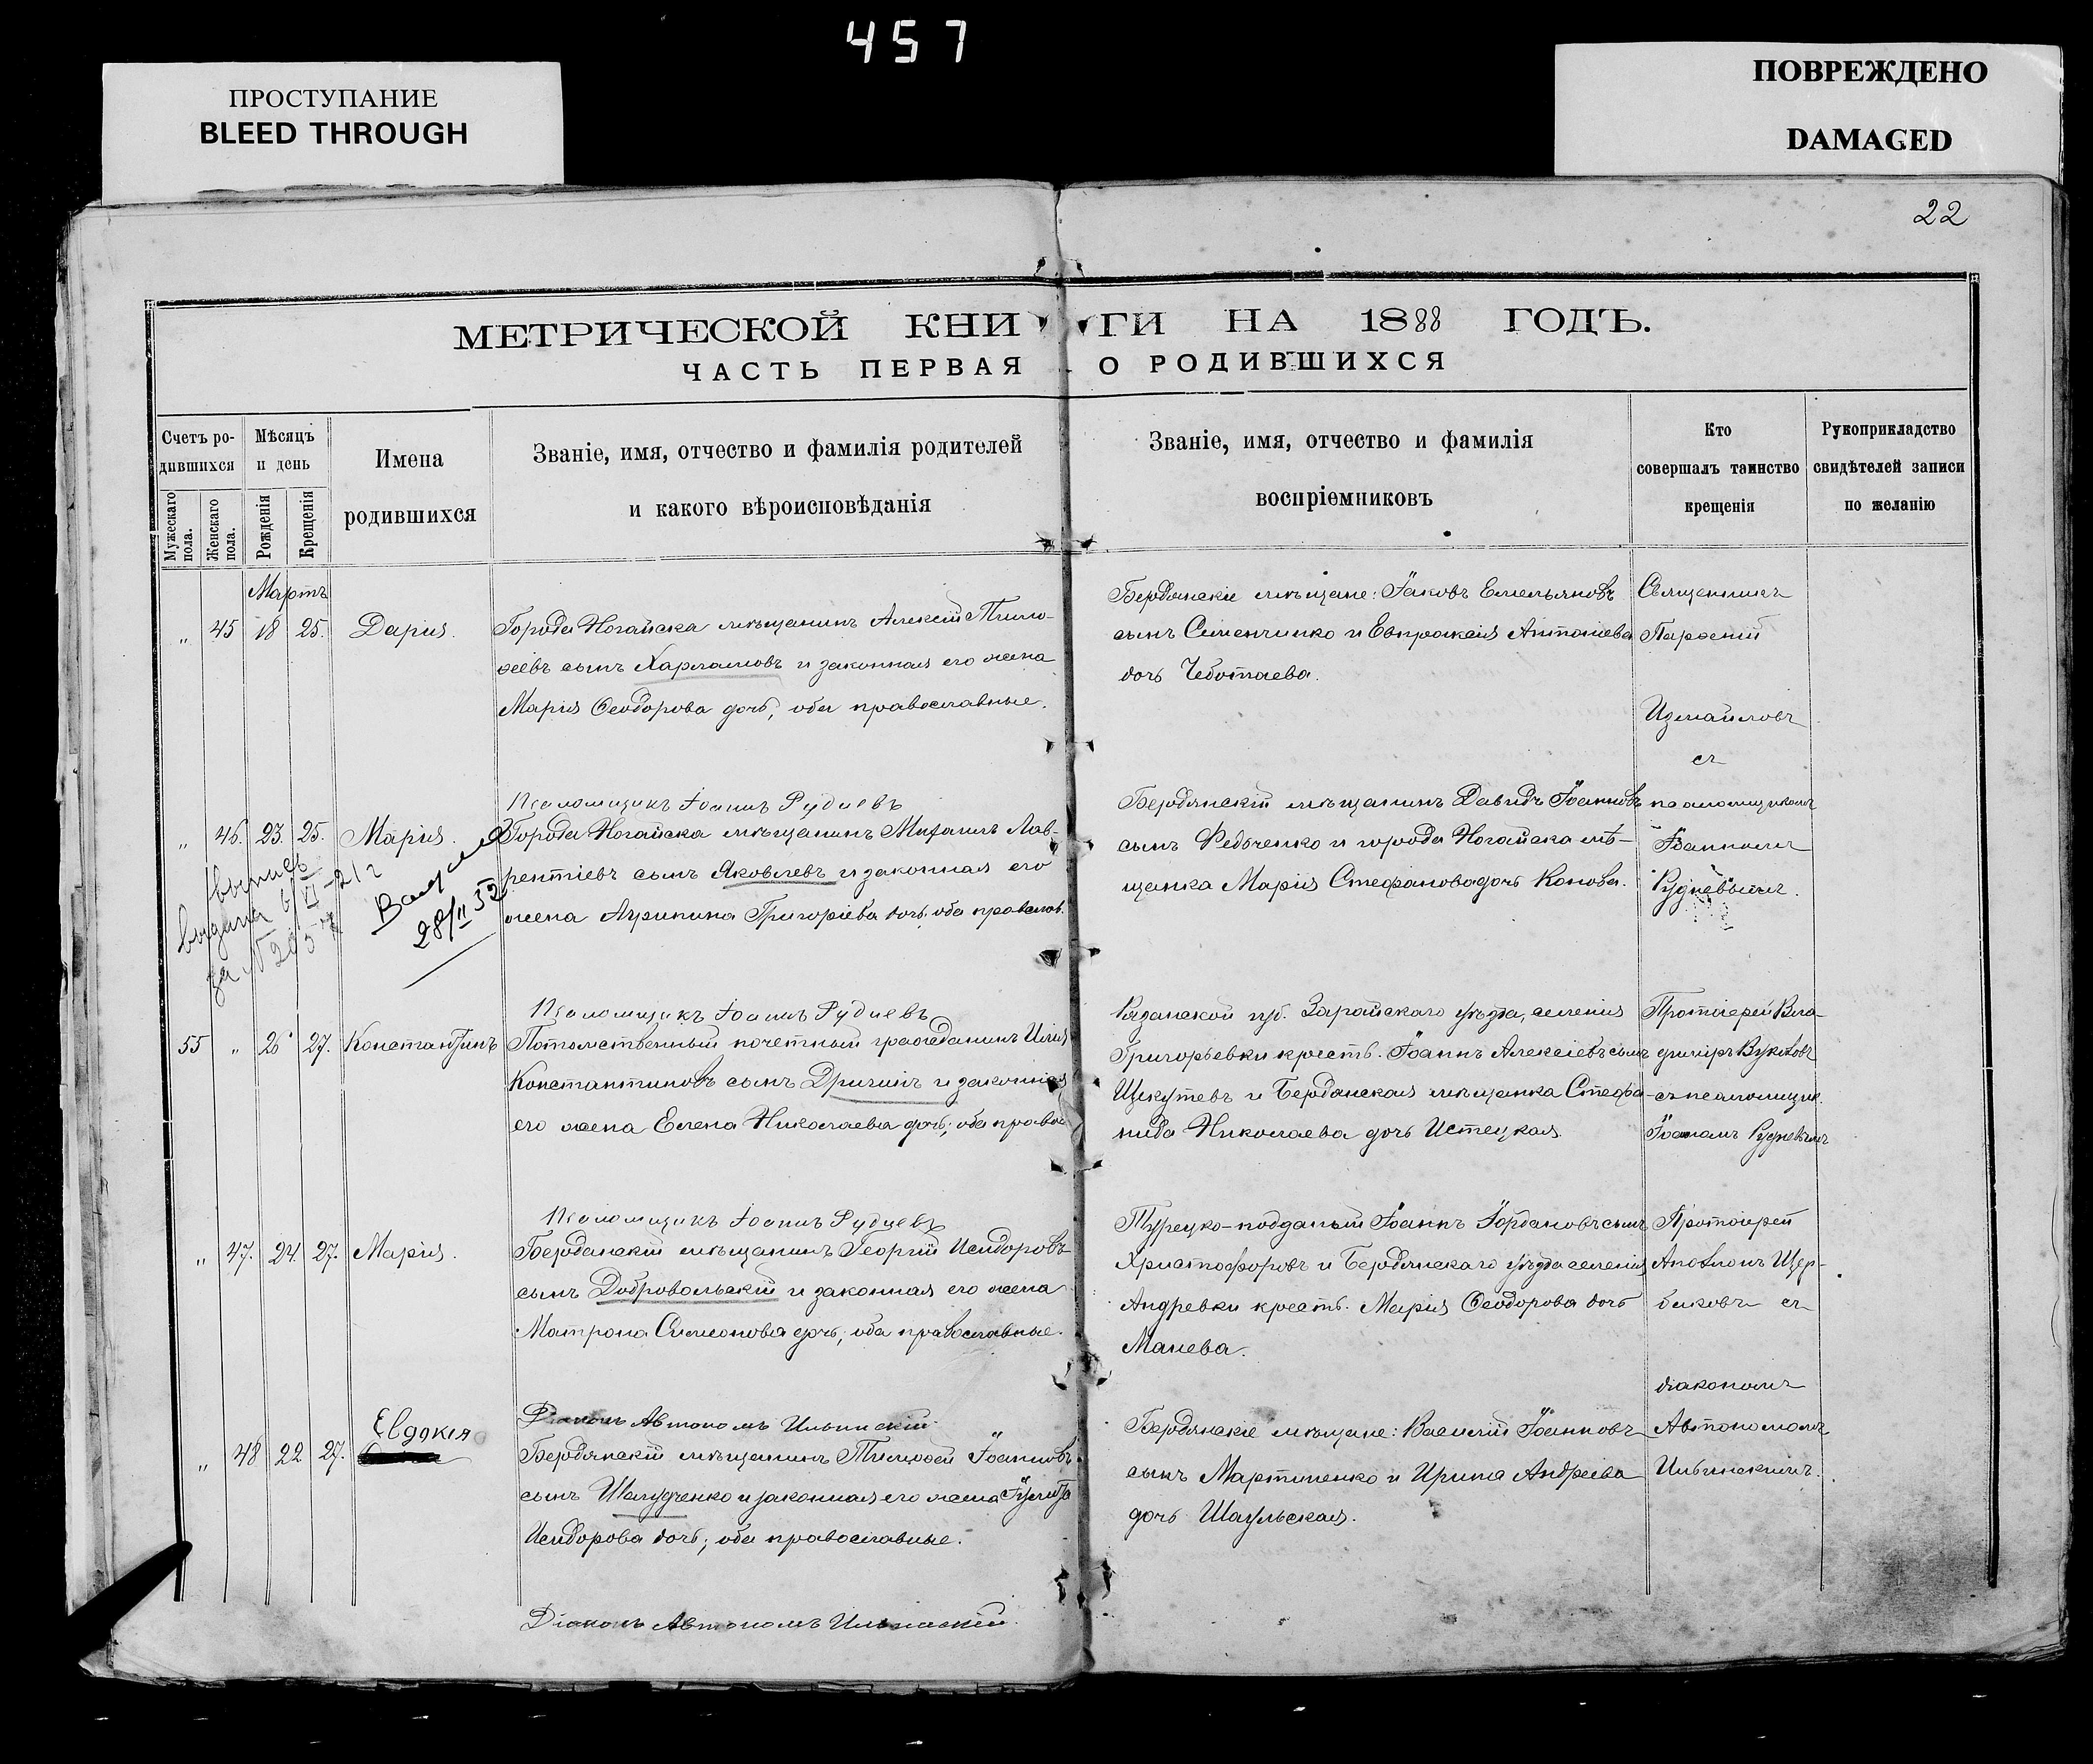 457
ПРОСТУПАНИЕ
BLEED THROUGH
ПОВРЕЖДЕНО
DAMAGED
22
МЕТРИЧЕСКОЙ КНИГИ НА 1888 ГОДЪ.
ЧАСТЬ ПЕРВАЯ О РОДИВШИХСЯ
Счетъ ро-
дившихся
Мужескаго пола.
Женскаго пола.
Мѣсяцъ
и день
Рожденія
Крещенія
Имена
родившихся
Званіе, имя, отчество и фамилія родителей
и какого вѣроисповѣданія
Званіе, имя, отчество и фамилія
воспріемниковъ
Кто
совершалъ таинство
крещенія
Рукоприкладство
свидѣтелей записи
по желанію
Мартъ
" 45 18 25. Дарія.
Города Ногайска мѣщанинъ Алексій Тимо-
ѳеевъ сынъ Харламовъ и законная его жена
Марія Ѳеодорова дочь, оба православные.
Бердянскіе мѣщане: Іаковъ Емельяновъ
сынъ Сименченко и Евпраксія Антоніева
дочь Чеботаева.
Священникъ
Парѳеній
Измайловъ
съ
Псаломщикъ Іоаннъ Рудневъ
" 46. 23. 25. Марія.
Города Ногайска мѣщанинъ Михаилъ Лав-
рентіевъ сынъ Яковлевъ и законная его
жена Агрипина Григоріева дочь, оба православ.
Бердянскій мѣщанинъ Давидъ Іоанновъ
сынъ Федченко и города Ногайска мѣ-
щанка Марія Стефанова дочь Конова.
псаломщикомъ
Іоанномъ
Рудневымъ.
выпись
выдана 6/VI-21 г
за №
28/II 52
Псаломщикъ Іоаннъ Рудневъ
55 " 20 27. Константинъ
Потомственный почетный гражданинъ Илія
Константиновъ сынъ и законная
его жена Елена Николаева дочь; оба правос
Рязанской губ. Зарайскаго уѣзда, селенія
Григорьевки крест. Іоаннъ Алексіевъ сынъ
Щекутевъ и Бердянская мѣщанка Стефа-
нида Николаева дочь Истецкая.
Протоіерей Вла-
диміръ
съ псаломщик.
Іоаномъ Рудневымъ
Псаломщикъ Іоаннъ Рудневъ
" 47. 24. 27. Марія.
Бердянскій мѣщанинъ Георгій Исидоровъ
сынъ Добровольскій и законная его жена
Матрона Симеонова дочь; оба православные.
Турецко-подданый Іоаннъ Іордановъ сынъ
Христофоровъ и Бердянскаго уѣзда селенія
Андревки крест. Марія Ѳеодорова дочь
Манева.
Протоіерей
Аполлонъ Щер-
баковъ съ
діакономъ
Діаконъ Автономъ Ильинскій
Евдокія
" 48 22 27.
Бердянскій мѣщанинъ Тимоѳей Іоанновъ
сынъ и законная его жена Іулитта
Исидорова дочь; оба православные.
Бердянскіе мѣщане: Василій Іоанновъ
сынъ Мартиненко и Ирина Андреева
дочь Шаульская.
Автономомъ
Ильинскимъ.
Діаконъ Автономъ Ильинскій.